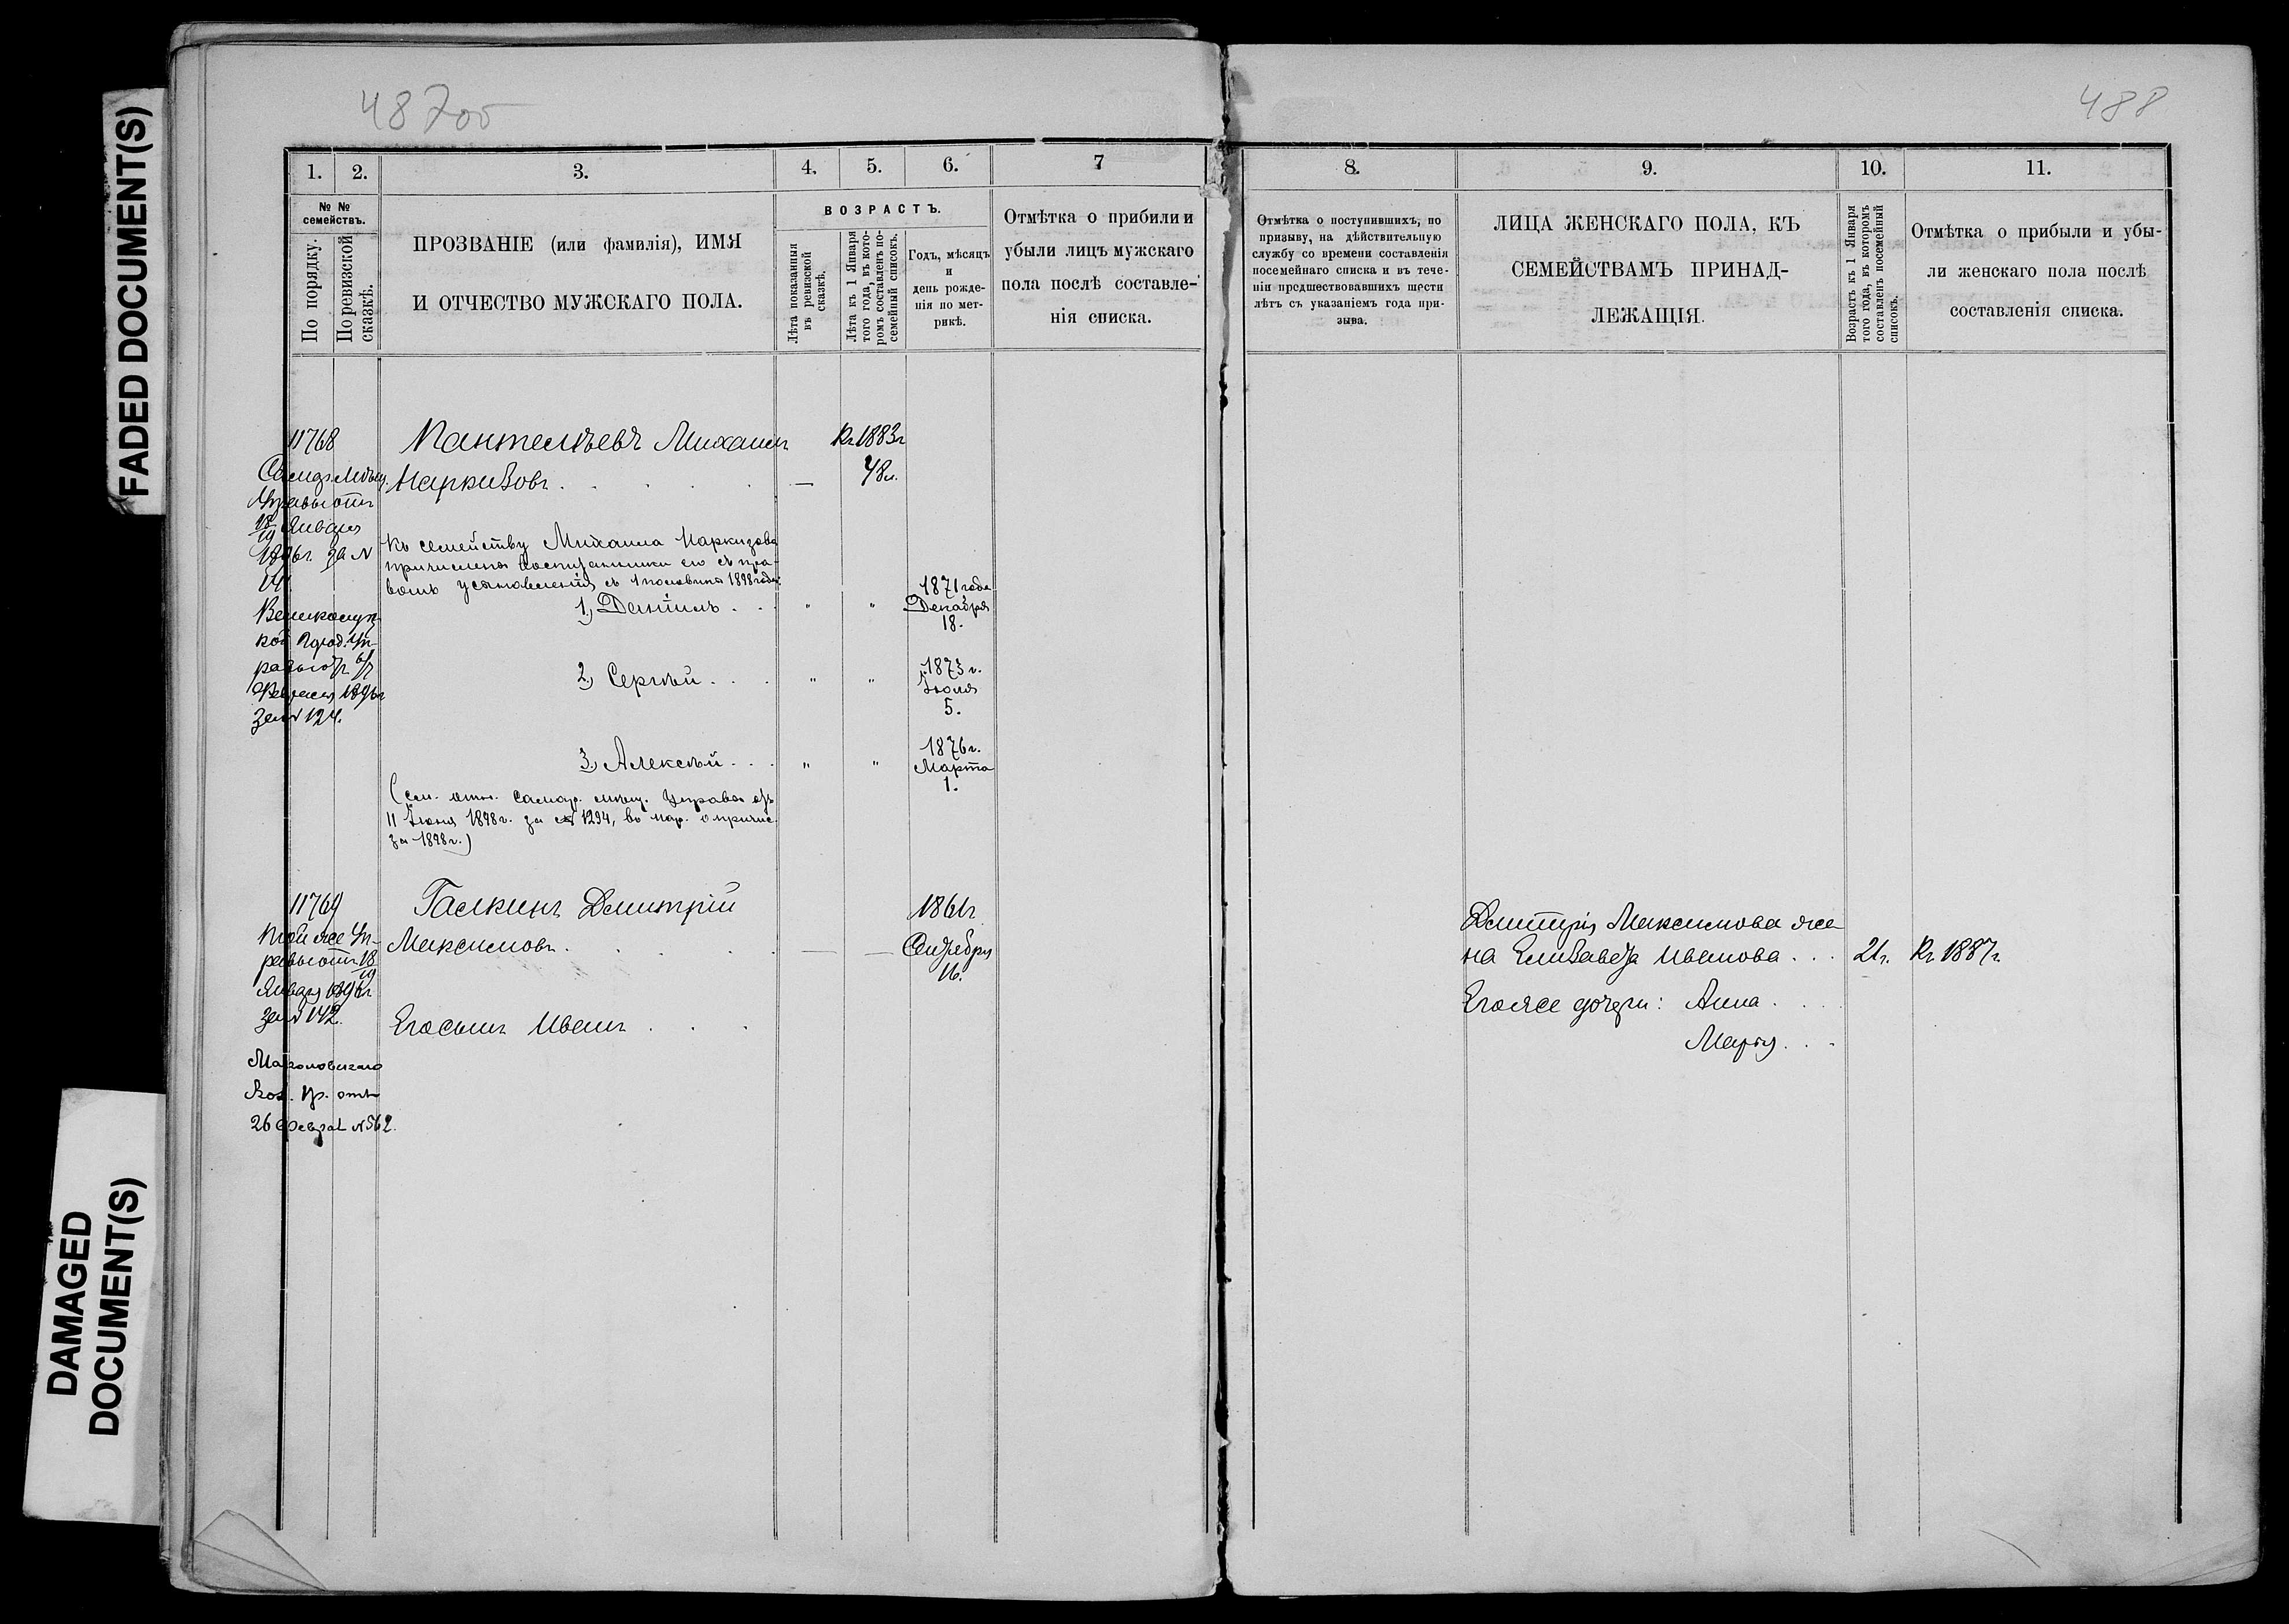 FADED DOCUMENT(S)
DAMAGED
DOCUMENT(S)
487об
1.
2.
3.
4.
5.
6.
7
№ №
семействъ.
По порядку.
По ревизской
сказкѣ.
ПРОЗВАНІЕ (или фамилія), ИМЯ
И ОТЧЕСТВО МУЖСКАГО ПОЛА.
ВОЗРАСТЪ.
Лѣта показанныя
въ ревизской
сказкѣ.
Лѣта къ 1 Января
того года, въ кото-
ромъ составленъ по-
семейный списокъ.
Годъ, мѣсяцъ
и
день рожде-
нія по мет-
рикѣ.
Отмѣтка о прибыли и
убыли лицъ мужскаго
пола послѣ составле-
нія списка.
11768
Самар. Мѣщ.
Управы отъ
18/19 Января
1896г. за №
Великолуц-
кой Город. Уп-
равы отъ
Февраля 1896г
за № 124.
Пантелѣевъ Михаилъ
Наркизовъ . . . . .
Къ 1883г
48л.
Къ семейству Михаила Наркизова
причислены воспитанники его съ пра-
вомъ усыновленія съ 1 половины 1898 года:
1.) Даніилъ . . . " "
1871 года
Декабря
18.
2.) Сергѣй . . . " "
1873 г.
Іюля
5.
3.) Алексѣй . . . " "
1876 г.
Марта
1.
(см. отн. Самар. мѣщ. Управы отъ
11 Іюня 1898г. за № 1294, въ нар. о причис.
за 1898г.)
11769
Той же Уп-
равы отъ 18/19
Января 1896г
за № 142.
Вол. Пр. отъ
26 Феврал № 562.
Галкинъ Дмитрій
Максимовъ . . . .
1861г
Сентября
16.
Его сынъ Иванъ . . .
488
8.
9.
10.
11.
Отмѣтка о поступившихъ, по
призыву, на дѣйствительную
службу со времени составленія
посемейнаго списка и въ тече-
ніи предшествовавшихъ шести
лѣтъ съ указаніемъ года при-
зыва.
ЛИЦА ЖЕНСКАГО ПОЛА, КЪ
СЕМЕЙСТВАМЪ ПРИНАД-
ЛЕЖАЩІЯ.
Возрастъ къ 1 Января
того года, въ которомъ
составленъ посемейный
списокъ.
Отмѣтка о прибыли и убы-
ли женскаго пола послѣ
составленія списка.
Дмитрія Максимова же-
на Елизавета Иванова . . . 21г. Къ 1887г.
Его же дочери: Анна . . . .
Марья . . .